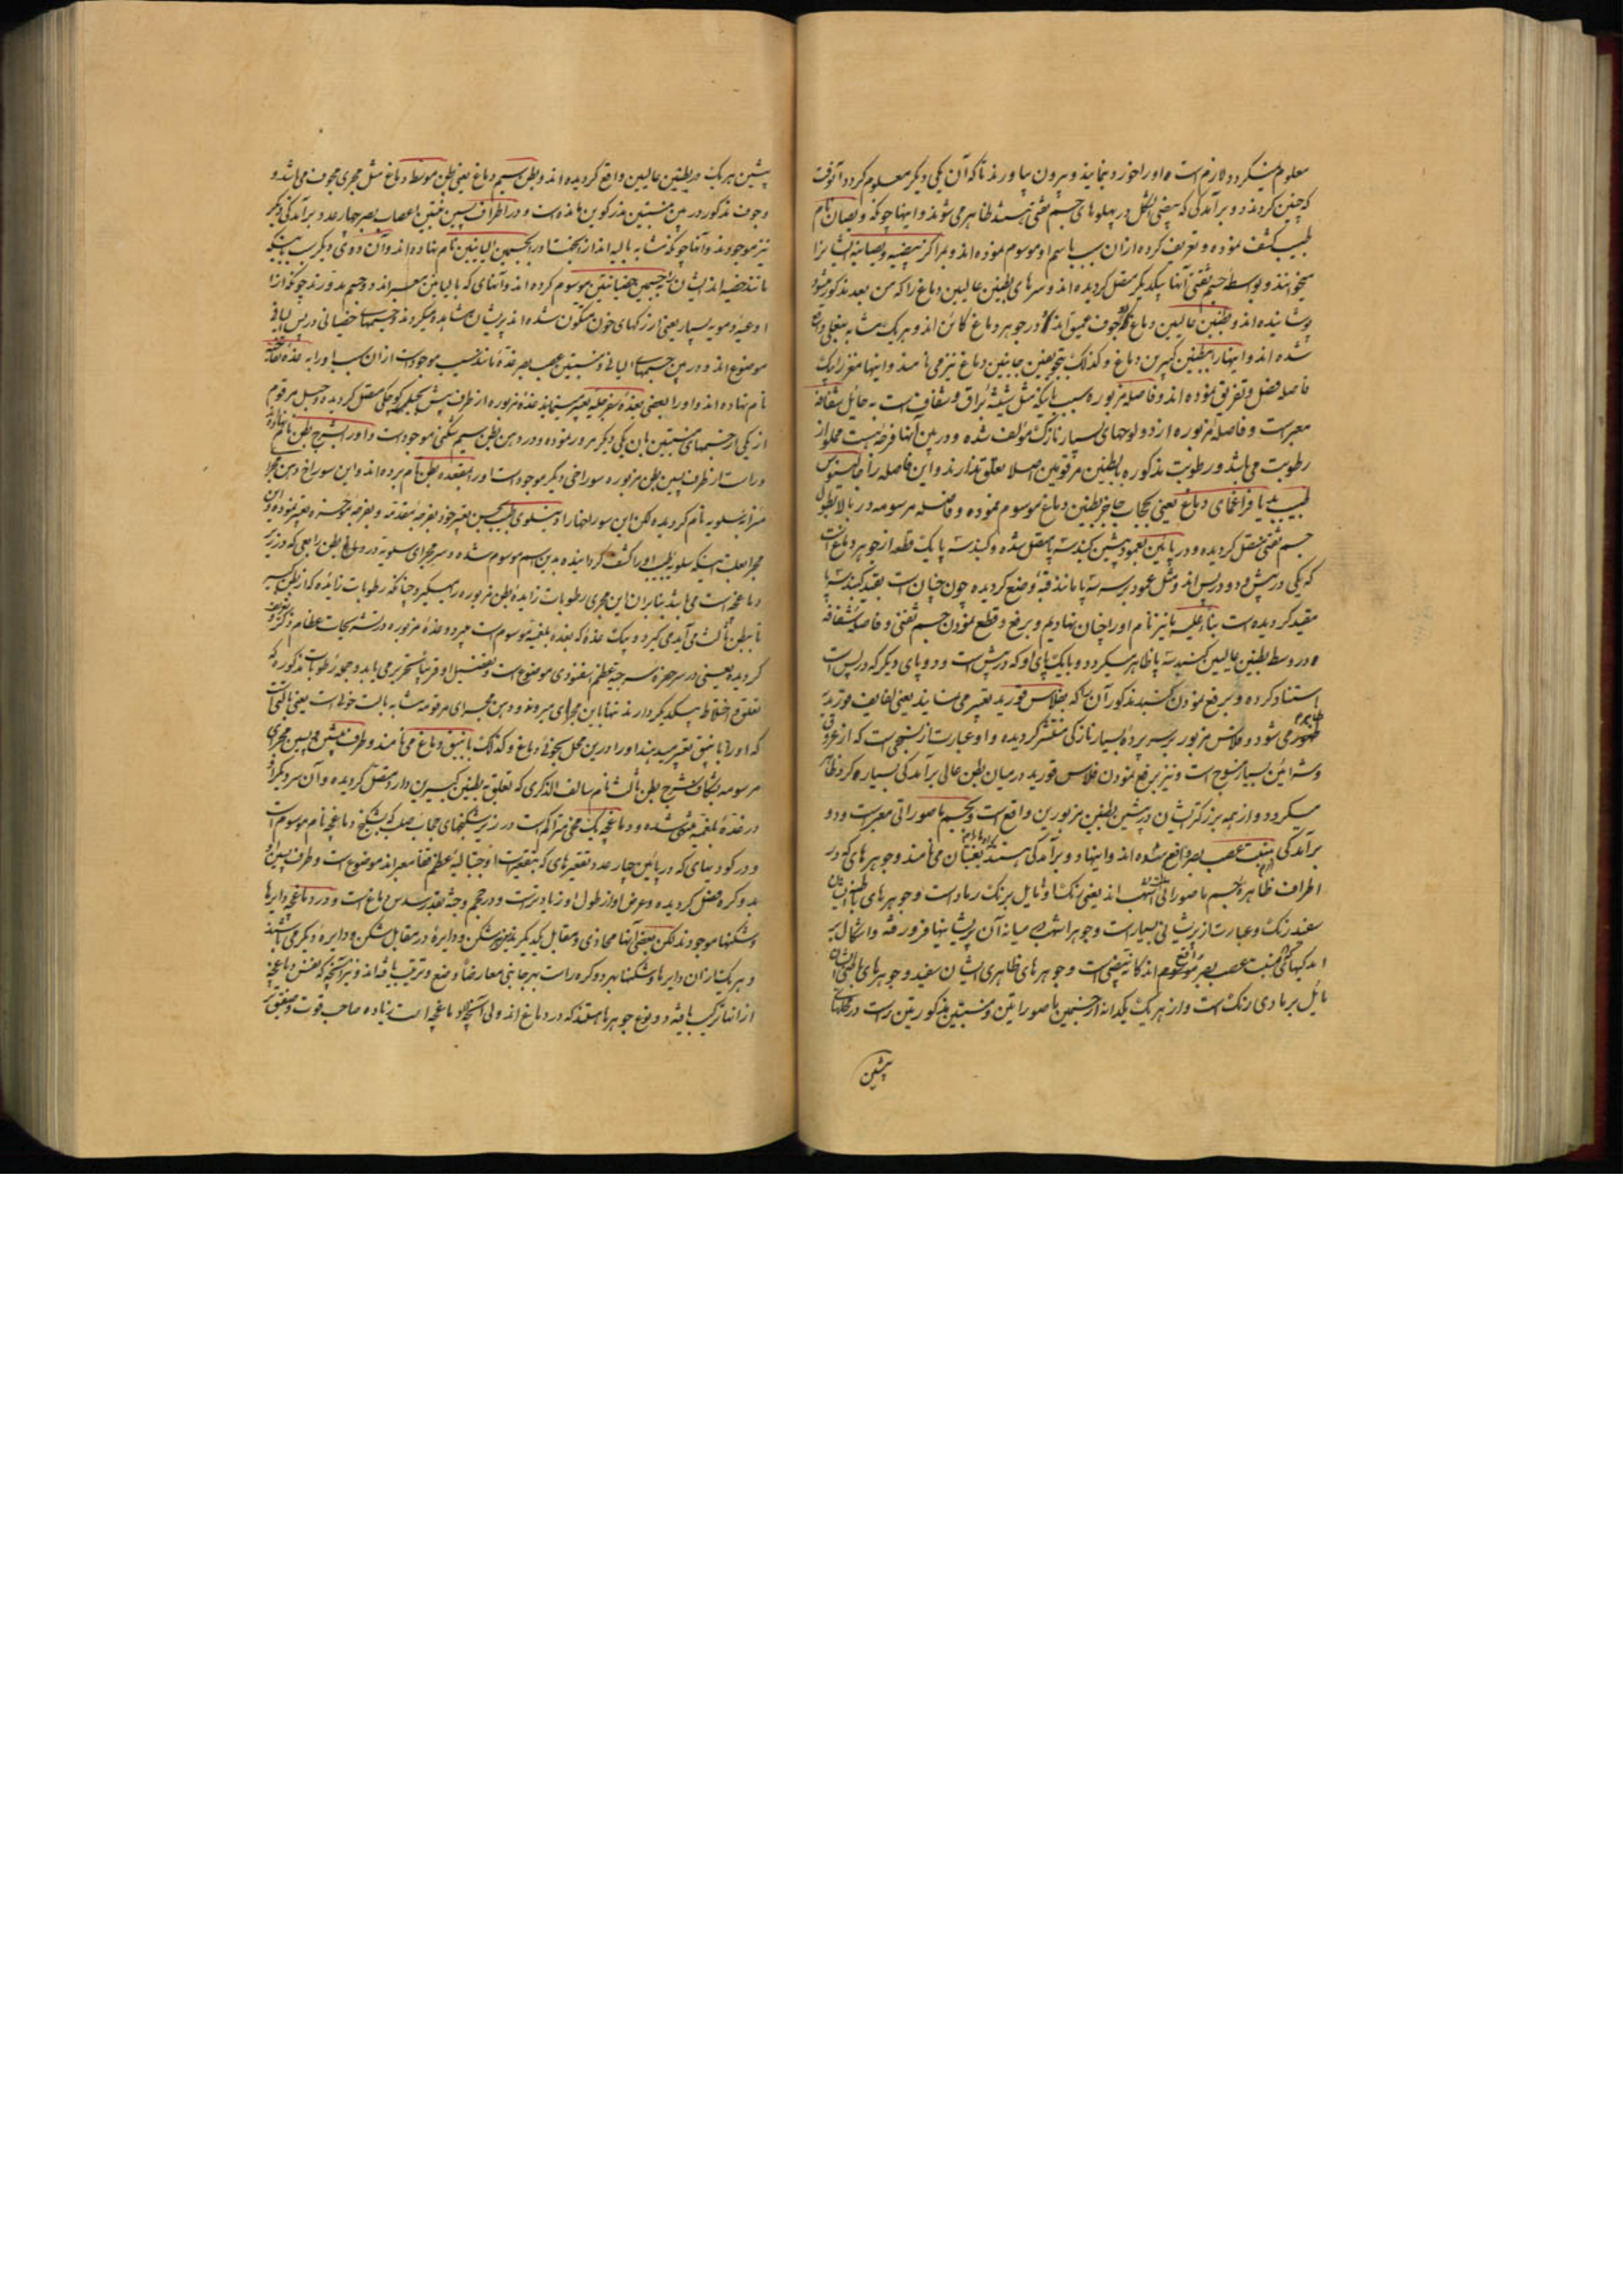 معلوم میگردد لازم است که او را خورد نمایند و بیرون بیاورند تا که آن یکی دیگر معلوم گردد آنوقت
که چنین کردند دو برآمدگی که بیضی الشکل در پهلوهای جسم ثفنی هستند ظاهر می شوند و اینها چونکه ویصان نام
طبیب کشف نموده و تعریف کرده از آن سبب باسم او موسوم نموده اند و مراکز بیضیه ویصانیه ایشانرا
میخوانند و بواسطه جسم ثفنی آنها بیکدیگر متصل گردیده اند و سرهای بطنین عالیین دماغ را که من بعد مذکور میشود
پوشانیده اند و بطنین عالیین دماغ دو جوف عمیق اند که در جوهر دماغ کائن اند و هر یک مشابه بنعلی واقع
شده اند و اینها را بطنین کبیرین دماغ و کذلک بتجویفین جانبین دماغ نیز می نامند و اینها مغز را یک
فاصله فصل و تفریق نموده اند و فاصله مزبوره بسبب اینکه مثل شیشه براق و شفاف است به حائل شفافه
معبر است و فاصله مزبوره از دو لوحهای بسیار نازک مؤلف شده و در بین آنها فرضه ایست مملو از
رطوبت می باشد و رطوبت مذکوره ببطنین مرقومین اصلا تعلق ندارند و این فاصله را جالینوس
طبیب بدیافراغمای دماغ یعنی بحجاب حاجز بطنین دماغ موسوم نموده و فاصله مرسومه در بالا بطول
جسم ثفنی متصل گردیده و در پایین بعمود پیشین گنبد سه پا متصل شده و گنبد سه پا یک قطعه از جوهر دماغ است
که یکی در پیش و دو در پس اند و مثل عمود بر سه پا مانند قبه وضع گردیده چون چنان است بقید گنبد سه پا
مقید گردیده است بناء علیه ما نیز نام او را چنان نهادیم و برفع و قطع نمودن جسم ثفنی و فاصله شفافه
در وسط بطنین عالیین گنبد سه پا ظاهر میگردد و با یک پای او که در پیش است و دو پای دیگر که در پس است
استناد کرده و برفع نمودن گنبد مذکور آن که بفلاس قورید تعبیر می نمایند یعنی لفایف قوریدیه
ظهور می شود و فلاس مزبور بر سر پرده بسیار نازکی منتشر گردیده و او عبارت از نسجی است که از عروق
و شرائین بسیار منسوج است و نیز برفع نمودن فلاس قورید در میان بطن عالی برآمدگی بسیاره گرد ظاهر
میگردد و از همه بزرکتر ایشان در پیشین بطنین مزبورین واقع است و بجسیم ناصوراتی معبر است و دو
برآمدگی منبت عصب بصر واقع شده اند و اینها دو برآمدگی هستند ثغبان می نامند و جوهرهای که در
اطراف ظاهره جسم ناصوراتی اشهب اند یعنی رنگشان مایل برنگ رماد است و جوهرهای باطنی ایشان
سفید رنگ و عبارت از ریشائی بسیار است و جوهر اشهب میانه آن ریشاینها فرو رفته و اشکال بر
مایل برمادی رنگ است و از هر یک یکدانه از جسمین ناصوراتین و منبتین مذکورین است در محلهای
پیشین
پیشین هر یک در بطنین عالیین واقع گردیده اند و بطن سیم دماغ یعنی بطن موسط دماغ مثل مجری مجوف می باشد و
جوف مذکور در بین منبتین مذکورین مانده است و در اطراف پسین منبتین اعصاب بصر چهار عدد برآمدگی دیگر
نیز موجودند و آنها چونکه مشابه بالیه اند از آنجهت دو را بجسمین الیانین نام نهاده اند و آن دوی دیگر بسبب اینکه
مانند خصیه اند ایشان را بجسمین خصیانیین موسوم کرده اند و آنهای که بالیانین معبر اند دو جسم مدورند چونکه از
اوعیه دمویه بسیار یعنی از رگهای خون متکون شده اند پریشان مشاهده میگردند و جسمهای خصیانی در پس الیانی
موضوع اند و در بین جسمهای الیانی و منبتین عصب بصر غده مانند سیب موجود است از آن سبب او را به غده
نام نهاده اند و او را بعضی بغده سفرجلیه تعبیر مینمایند غده مزبوره از طرف پیش بحبل کوچکی متصل گردیده و حبل مرقوم
از یکی از جسمهای منبتین بآن یکی دیگر مرور نموده و در دهن بطن سیم شکنی موجود است و او را بشرج بطن نام نهاده
و راست از طرف پسین بطن مزبوره سوراخی دیگر موجود است او را بمقعده بطن نام برده اند و این سوراخ دهن مجرا
میزابه سلویه نام گردیده لکن این سوراخها را وینسلوی طبیب بحسن تعبیر خود بفرجه مقدمه و بفرجه مؤخره تعبیر نموده و این
مجرا بعلت اینکه سلویه طبیب او را کشف گردانیده بدین اسم موسوم شده و سر مجرای سلویه در دماغ بطن رابعی که در زیر
دماغچه است می باشد بنابراین این مجری رطوبات زایده بطن مزبوره را میگیرد چنانکه رطوبات زایده که از بطنین کبیر
تا ببطن ثالث می آید می گیرد و بیک غده که بغده بلغمیه موسوم است میبرد و غده مزبوره در تشریحات عظام ذکر و تعریف
گردیده یعنی در سر حفره سرجیه عظم اسفنودی موضوع است و تفصیل او قریبا تحریر می یابد و همه رطوبات مذکوره که
تعلق و اختلاط بیکدیگر دارند تنها باین مجرای میروند و دهن مجرای مرقومه مشابه بآلت خوانی است یعنی بآلتی است
که او را بانبیق تعبیر میدهند او را درین محل بحوکه دماغ و کذلک بانبیق دماغ می نامند و طرف پیش و پسین مجرای
مرسومه بشکاف شرج بطن ثالث نام سالف الذکری که تعلق به بطنین کبیرین دارد متصل گردیده و آن سر دیگر او
در غده بلغمیه منتهی شده و دماغچه یک مخی متراکم است در زیر شکنجهای حجاب صلب که بشکنج دماغچه نام موسوم است
و در گودیهای که در پائین چهار عدد تقعیرهای که بتقعیرات اوجبتالیه عظم قفا معبر اند موضوع است و طرف پسین او
بدو کره متصل گردیده و عرض او از طول او زیادتر است و در حجم و جثه بقدر سدس دماغ است و در دماغچه دایرها
و شکنها موجودند لکن بعضی آنها محاذی و مقابل یکدیگر نیند شکن و دایره در مقابل شکن و دایره دیگر می باشند
و هر یک از آن دایرها و شکنها بهر دو کره راست بهر جانبی معارضا وضع و ترتیب یافته اند و نیز آنچه که نفس دماغچه
از آنها ترکیب یافته دو نوع جوهرها هستند که در دماغ اند ولی آنچه که دماغچه است زیاده صاحب قوت و